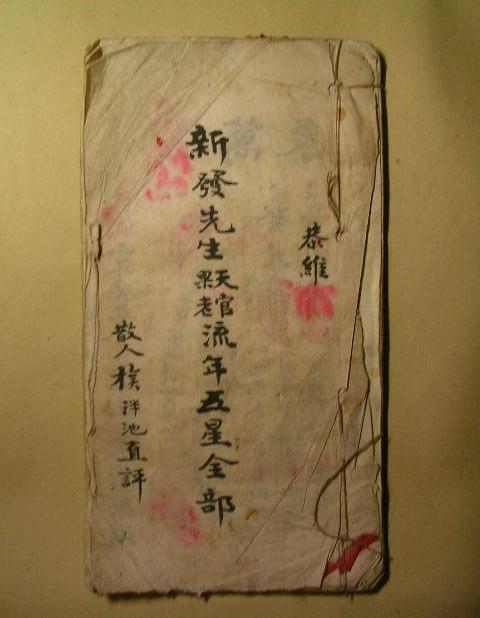 恭維
新發先生天官果老流年五星全部
散人樸泮池直評